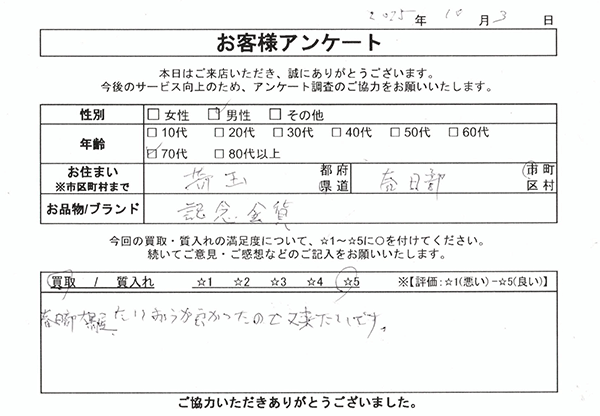 2025年 10月 3日
お客様アンケート
本日はご来店いただき、誠にありがとうございます。
今後のサービス向上のため、アンケート調査のご協力をお願いいたします。
性別 □女性 ☑男性 □その他
年齢 □10代 □20代 □30代 □40代 □50代 □60代
☑70代 □80代以上
お住まい ※市区町村まで 埼玉 都府県道 春日部 市町区村
お品物/ブランド 記念金貨
今回の買取・質入れの満足度について、☆1～☆5に○を付けてください。
続いてご意見・ご感想などのご記入をお願いいたします。
買取 / 質入れ ☆1 ☆2 ☆3 ☆4 ☆5 ※【評価:☆1(悪い)-☆5(良い)】
春日部 たいおうが良かったので又来たいです。
ご協力いただきありがとうございました。